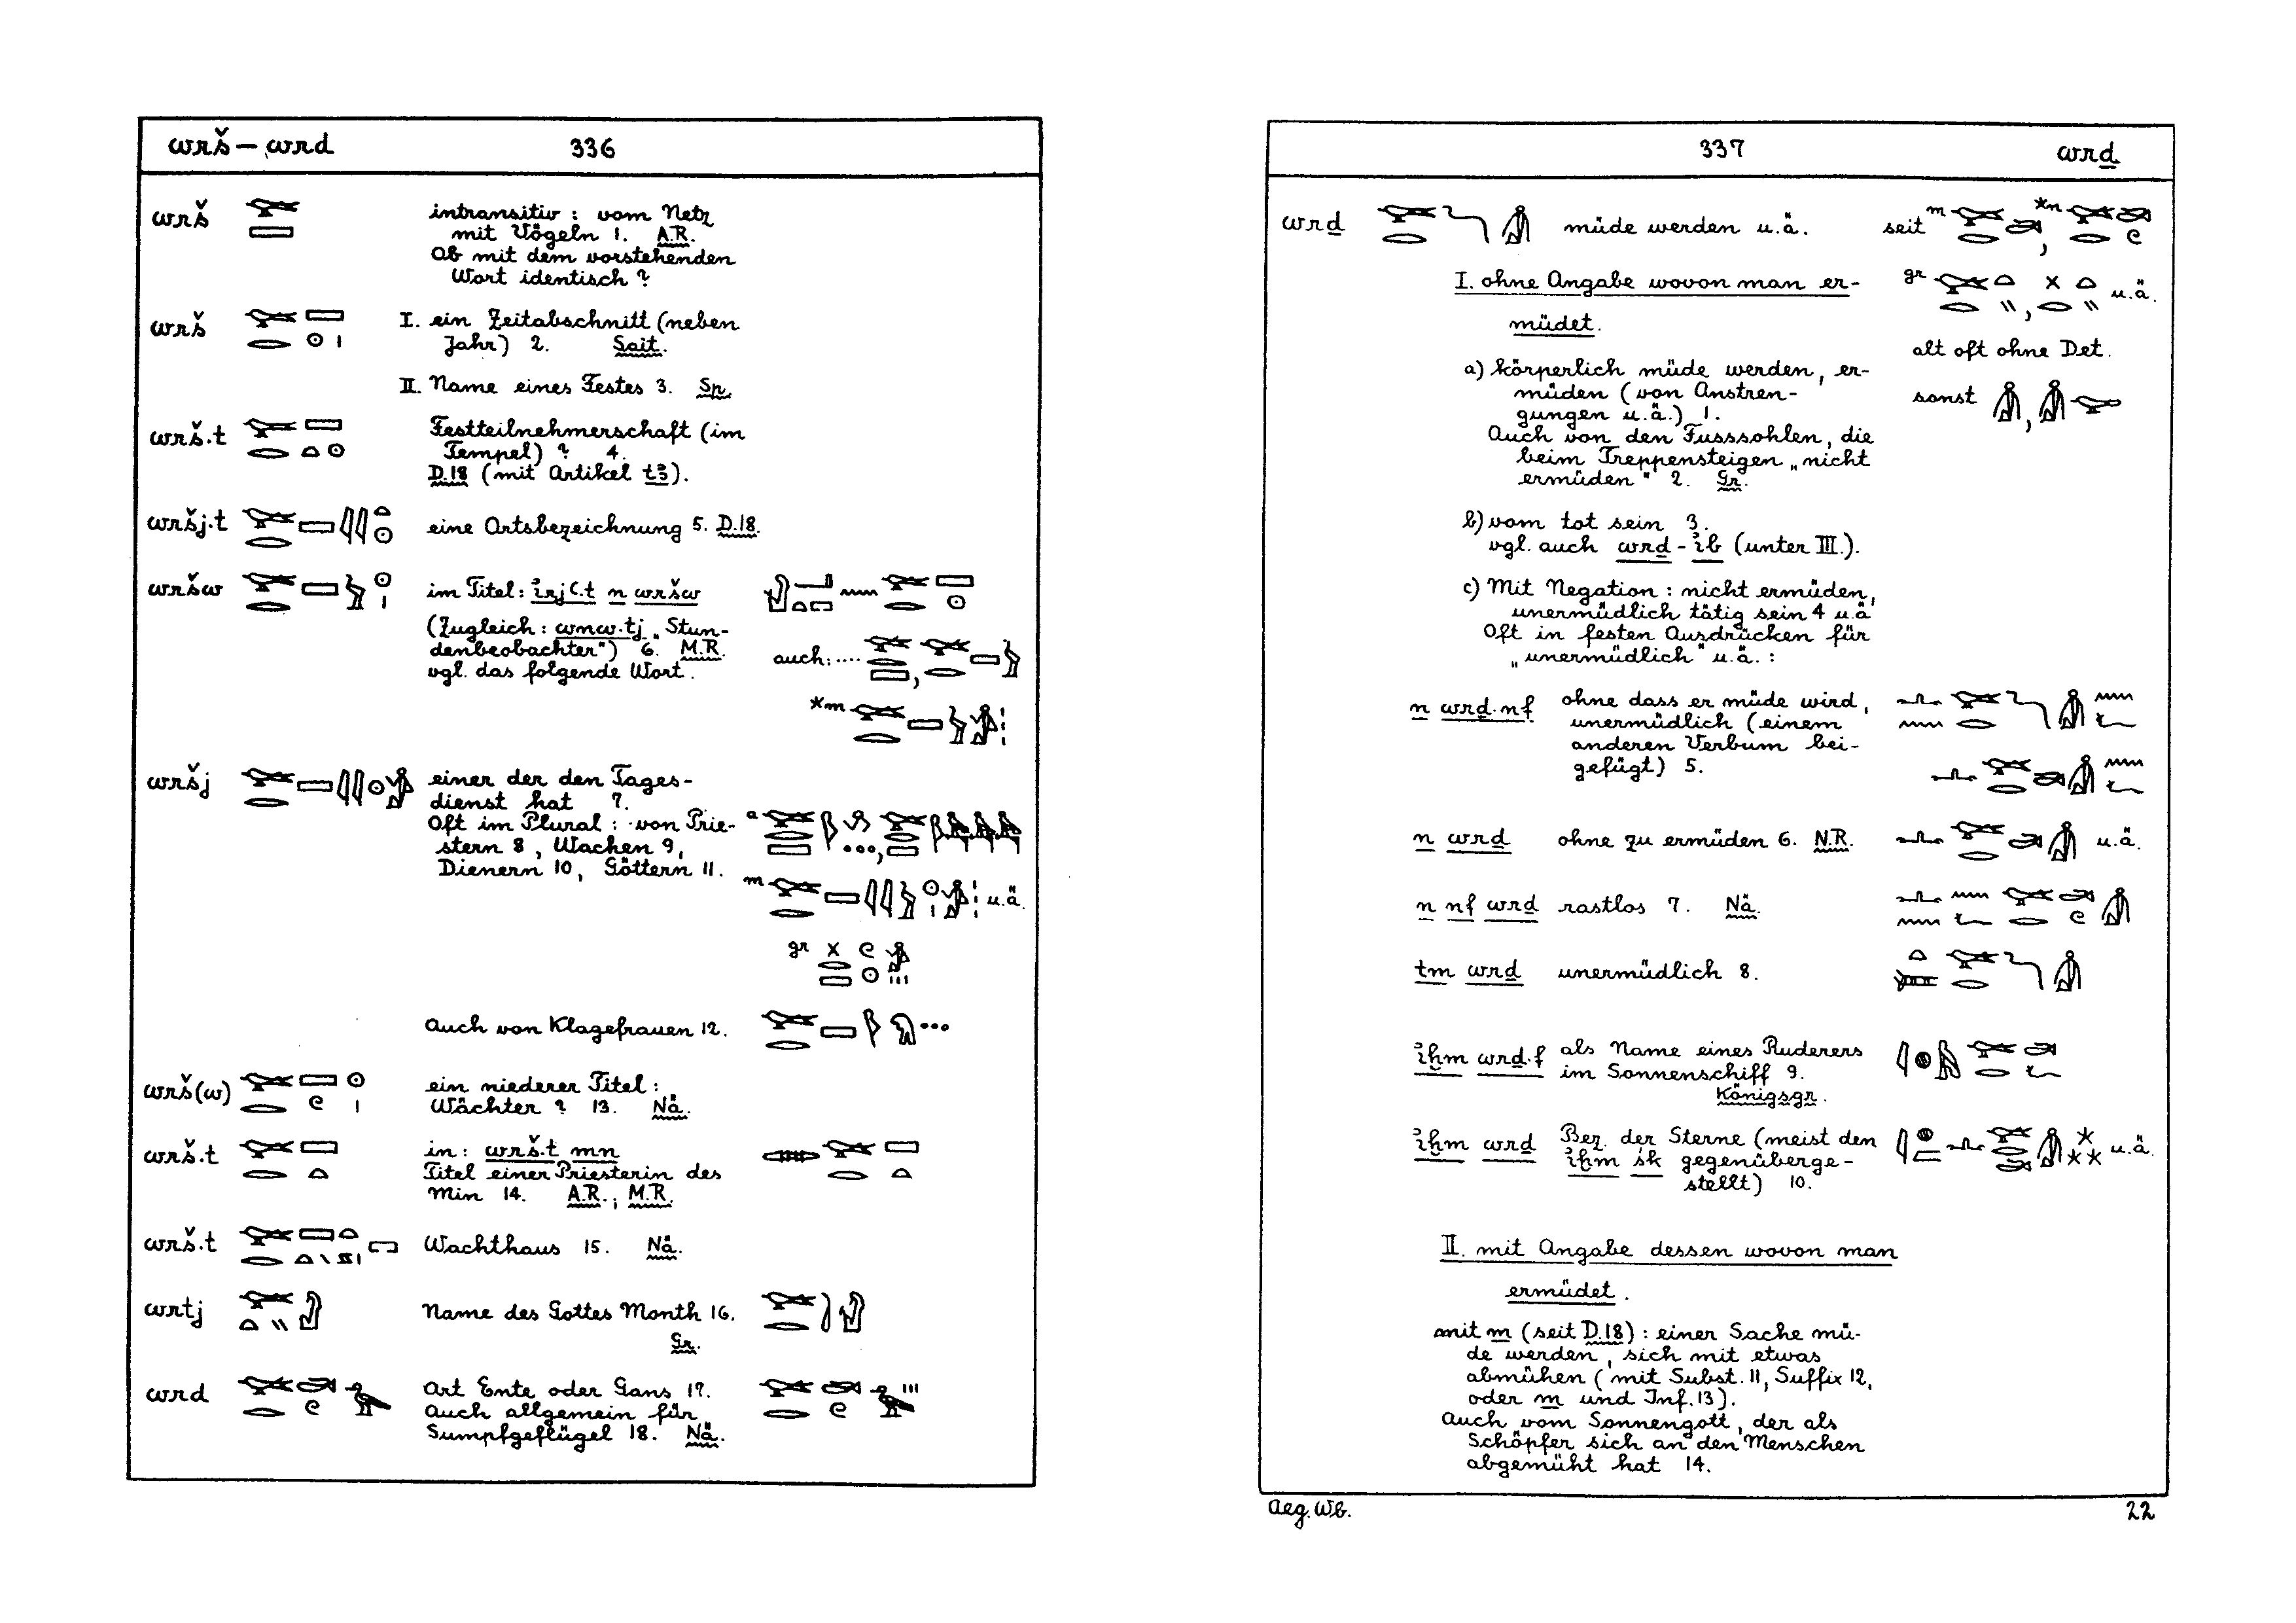 wrš – wrd 336
wrš intransitiv : vom Netz
mit Vögeln 1. A.R.
Ob mit dem vorstehenden
Wort identisch ?
wrš I. ein Zeitabschnitt (neben
Jahr) 2. Sait.
II. Name eines Festes 3. Sp.
wrš.t Festteilnehmerschaft (im
Tempel) ? 4.
D.18 (mit Artikel tꜣ).
wršj.t eine Ortsbezeichnung 5. D.18.
wršw im Titel: irj ꜥ.t n wršw
(Zugleich: wnw.tj „Stun-
denbeobachter") 6. M.R.
auch: ....
vgl. das folgende Wort.
*m
wršj einer der den Tages-
dienst hat 7.
Oft im Plural : von Prie-
stern 8, Wachen 9,
Dienern 10, Göttern 11.
a
m u.ä.
gr
Auch von Klagefrauen 12.
wrš(w) ein niederer Titel :
Wächter ? 13. Nä.
wrš.t in : wrš.t mn
Titel einer Priesterin des
Min 14. A.R., M.R.
wrš.t Wachthaus 15. Nä.
wrtj Name des Gottes Month 16.
Gr.
wrd Art Ente oder Gans 17.
Auch allgemein für
Sumpfgeflügel 18. Nä.
337 wrḏ
wrḏ müde werden u.ä. seit m , *n
I. ohne Angabe wovon man er- gr , u.ä.
müdet.
alt oft ohne Det.
a) körperlich müde werden, er-
müden (von Anstren- sonst ,
gungen u.ä.) 1.
Auch von den Fusssohlen, die
beim Treppensteigen „nicht
ermüden" 2. Gr.
b) vom tot sein 3.
vgl. auch wrḏ-ib (unter III.).
c) Mit Negation : nicht ermüden,
unermüdlich tätig sein 4 u.ä
Oft in festen Ausdrücken für
„unermüdlich" u.ä. :
n wrḏ.nf ohne dass er müde wird,
unermüdlich (einem
anderen Verbum bei-
gefügt) 5.
n wrḏ ohne zu ermüden 6. N.R. u.ä.
n nf wrḏ rastlos 7. Nä.
tm wrḏ unermüdlich 8.
iḫm wrḏ.f als Name eines Ruderers
im Sonnenschiff 9.
Königsgr.
iḫm wrḏ Bez. der Sterne (meist den u.ä.
iḫm śk gegenüberge-
stellt) 10.
II. mit Angabe dessen wovon man
ermüdet.
mit m (seit D.18) : einer Sache mü-
de werden, sich mit etwas
abmühen (mit Subst. 11, Suffix 12,
oder m und Inf. 13).
Auch vom Sonnengott, der als
Schöpfer sich an den Menschen
abgemüht hat 14.
Aeg. Wb. 22